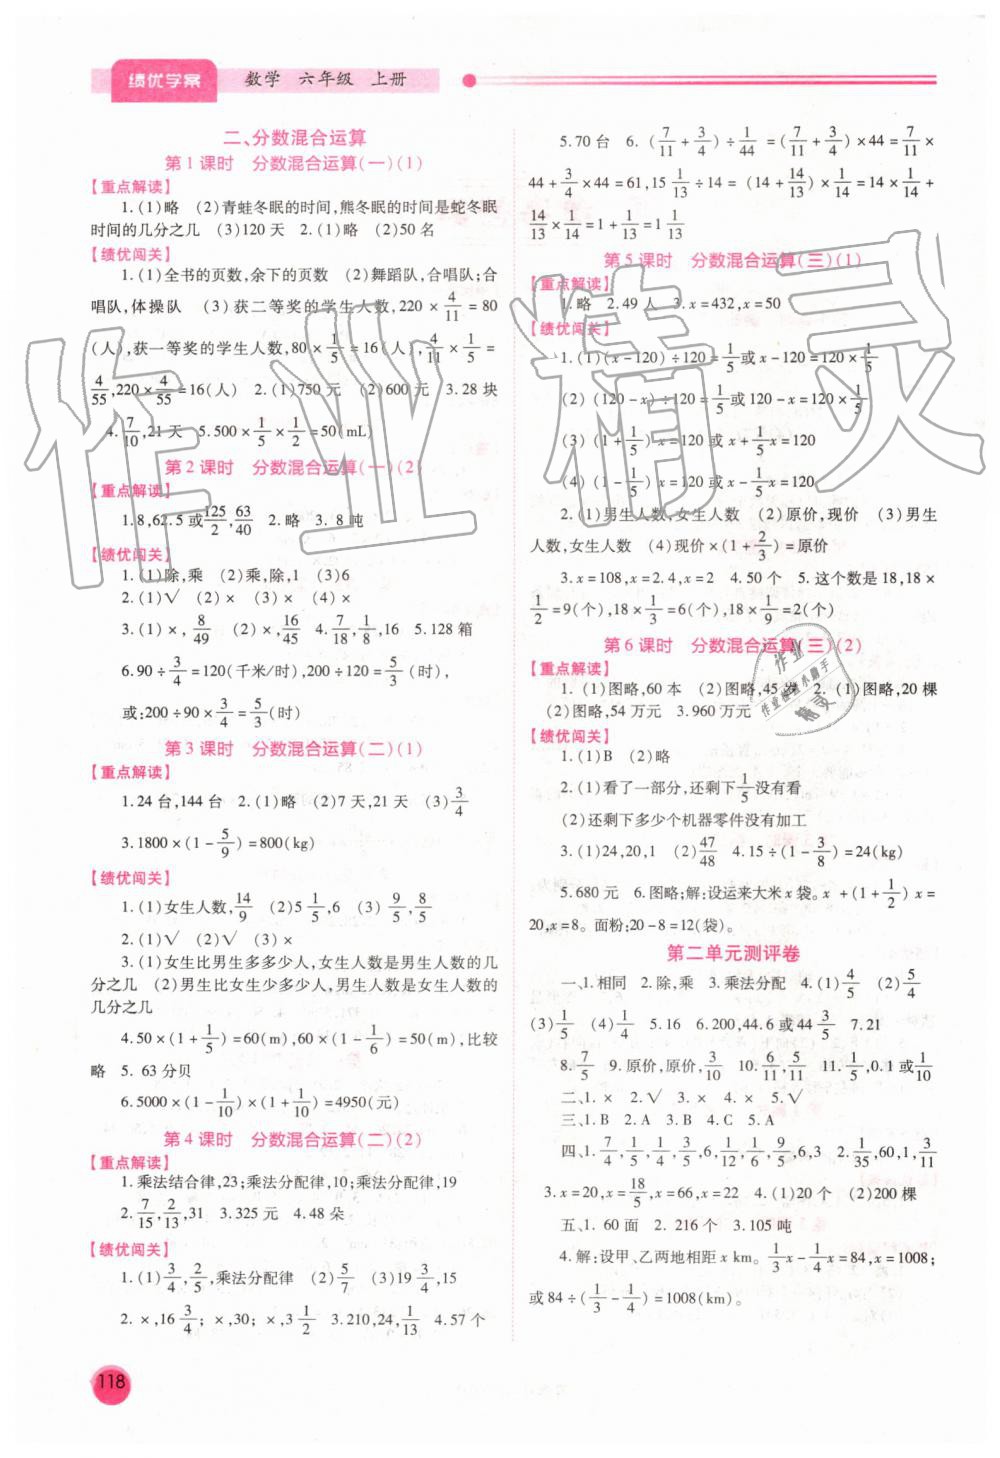 绩优学案 数学 六年级 上册
二、分数混合运算
第1课时 分数混合运算(一)(1)
【重点解读】
1.(1)略 (2)青蛙冬眠的时间,熊冬眠的时间是蛇冬眠
时间的几分之几 (3)120天 2.(1)略 (2)50名
【绩优闯关】
1.(1)全书的页数,余下的页数 (2)舞蹈队,合唱队;合
唱队,体操队 (3)获二等奖的学生人数,220×4/11=80
(人),获一等奖的学生人数,80×1/5=16(人),4/11×1/5=
4/55,220×4/55=16(人) 2.(1)750元 (2)600元 3.28块
4.7/10,21天 5.500×1/5×1/2=50(mL)
第2课时 分数混合运算(一)(2)
【重点解读】
1.8,62.5或125/2,63/40 2.略 3.8吨
【绩优闯关】
1.(1)除,乘 (2)乘,除,1 (3)6
2.(1)√ (2)× (3)× (4)×
3.(1)×,8/49 (2)×,16/45 4.7/18,1/8,16 5.128箱
6.90÷3/4=120(千米/时),200÷120=5/3(时),
或:200÷90×3/4=5/3(时)
第3课时 分数混合运算(二)(1)
【重点解读】
1.24台,144台 2.(1)略 (2)7天,21天 (3)3/4
3.1800×(1-5/9)=800(kg)
【绩优闯关】
1.(1)女生人数,14/9 (2)5 1/5,6 (3)9/5,8/5
2.(1)√ (2)√ (3)×
3.(1)女生比男生多多少人,女生人数是男生人数的几
分之几 (2)男生比女生少多少人,男生人数是女生人数的
几分之几
4.50×(1+1/5)=60(m),60×(1-1/6)=50(m),比较
略 5. 63分贝
6.5000×(1-1/10)×(1+1/10)=4950(元)
第4课时 分数混合运算(二)(2)
【重点解读】
1.乘法结合律,23;乘法分配律,10;乘法分配律,19
2.7/15,2/13,31 3.325元 4.48朵
【绩优闯关】
1.(1)3/4,2/5,乘法分配律 (2)5/7 (3)19 3/4,15
2. ×,16 3/4; ×,30; ×,3 1/2 3.210,24,1/13 4.57个
118
5.70台 6.(7/11+3/4)÷1/44=(7/11+3/4)×44=7/11×
44+3/4×44=61,15 1/13÷14=(14+14/13)×1/14=14×1/14+
14/13×1/14=1+1/13=1 1/13
第5课时 分数混合运算(三)(1)
【重点解读】
1.略 2.49人 3.x=432,x=50
【绩优闯关】
1.(1)(x-120)÷120=1/5或x-120=120×1/5
(2)(120-x)÷120=1/5或120-x=120×1/5
(3)(1+1/5)x=120或x+1/5x=120
(4)(1-1/5)x=120或x-1/5x=120
2.(1)男生人数,女生人数 (2)原价,现价 (3)男生
人数,女生人数 (4)现价×(1+2/3)=原价
3.x=108,x=2.4,x=2 4.50个 5.这个数是18,18×
1/2=9(个),18×1/3=6(个),18×1/9=2(个)
第6课时 分数混合运算(三)(2)
【重点解读】
1.(1)图略,60本 (2)图略,45岁 2.(1)图略,20棵
(2)图略,54万元 3.960万元
【绩优闯关】
1.(1)B (2)略
2.(1)看了一部分,还剩下1/5没有看
(2)还剩下多少个机器零件没有加工
3.(1)24,20,1 (2)47/48 4.15÷(1-3/8)=24(kg)
5.680元 6.图略;解:设运来大米x袋。x+(1+1/2)x=
20,x=8。面粉:20-8=12(袋)。
第二单元测评卷
一、1.相同 2.除,乘 3.乘法分配 4.(1)4/5 (2)5/4
(3)1/5 (4)1/4 5.16 6.200,44.6或44 3/5 7.21
8.7/5 9.原价,原价,3/10 10.6/11,5/11 11.1/5,0.1或1/10
二、1. × 2.√ 3. × 4. × 5.√
三、1.B 2.A 3.B 4.C 5.A
四、1.7/4,1/5,1/4,3/5,6,1/12,1/6,9/5,6,3 2.1/35,60,1,3/11
3.x=20,x=18/5,x=66,x=22 4.(1)20个 (2)200棵
五、1. 60面 2. 216个 3.105吨
4.解:设甲、乙两地相距x km。1/3x-1/4x=84,x=1008;
或84÷(1/3-1/4)=1008(km)。
作业精灵
作业
作业检查小助手
精灵